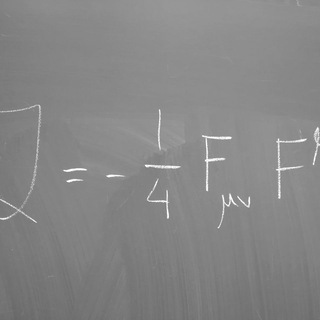 = - 1/4 F_μν F